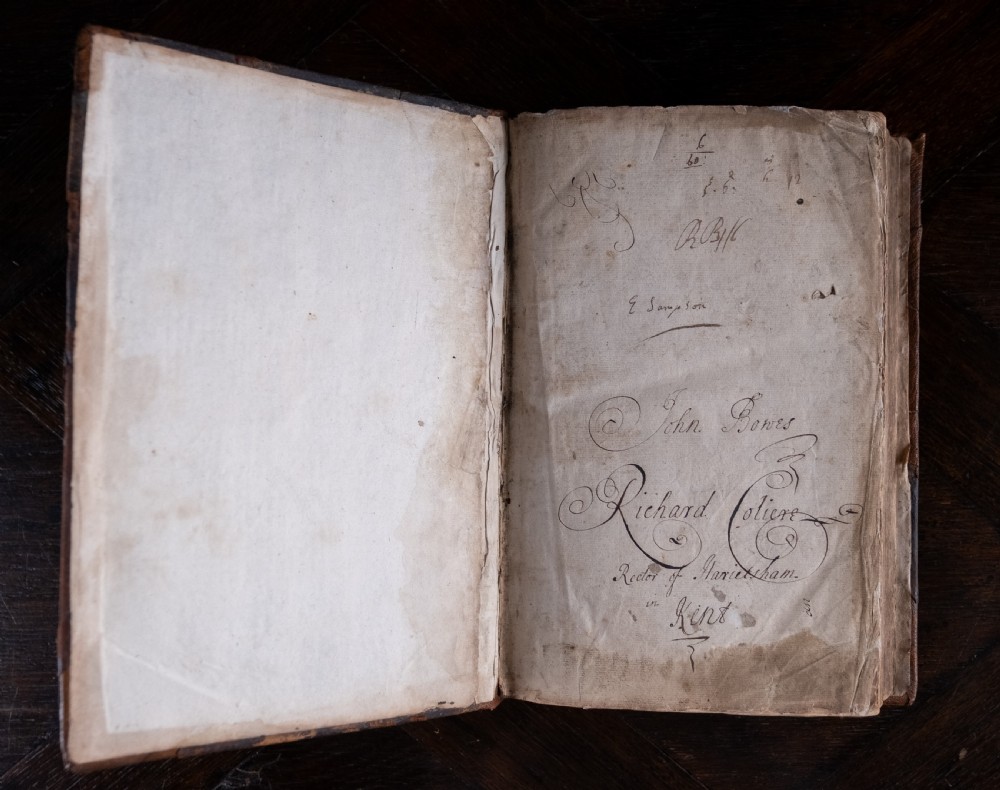 6
60
E Sampson
John Bowes
Richard Coliere
Rector of Harietsham
in
Kent